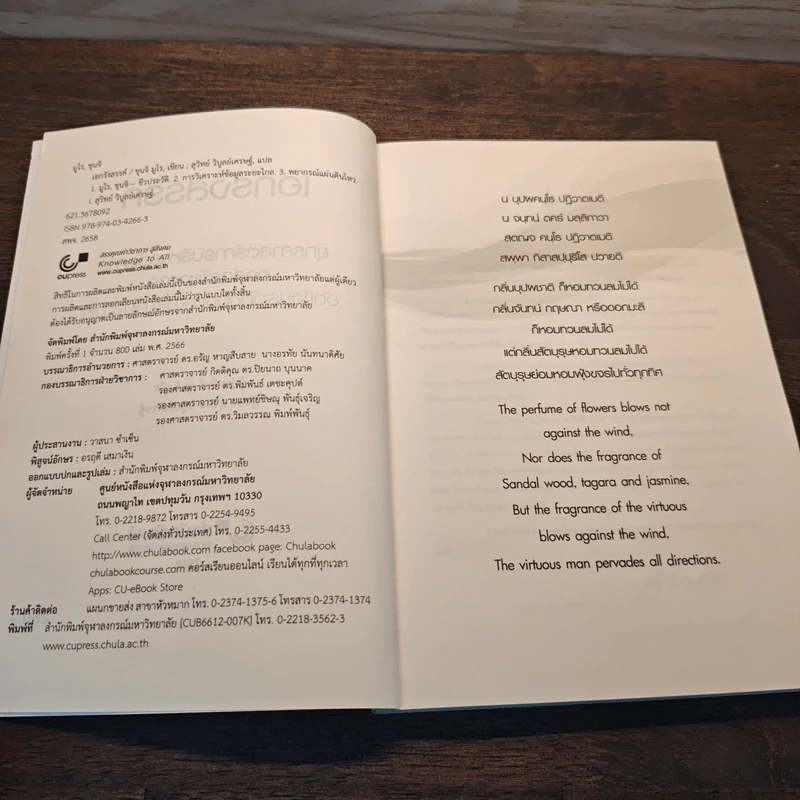 มูไร, ชุนจิ
เอกรังสรรค์ / ชุนจิ มูไร, เขียน ; สุวิทย์ วิบูลย์เศรษฐ์, แปล
1. มูไร, ชุนจิ -- ชีวประวัติ. 2. การวิเคราะห์ข้อมูลระยะไกล. 3. พยากรณ์แผ่นดินไหว.
I. สุวิทย์ วิบูลย์เศรษฐ์.
621.3678092
ISBN 978-974-03-4266-3
สพจ. 2658
cupress
สรรคุณค่าวิชาการ สู่สังคม
Knowledge to All
www.cupress.chula.ac.th
สิทธิในการผลิตและพิมพ์หนังสือเล่มนี้เป็นของสำนักพิมพ์จุฬาลงกรณ์มหาวิทยาลัยแต่ผู้เดียว
การผลิตและการลอกเลียนหนังสือเล่มนี้ไม่ว่ารูปแบบใดทั้งสิ้น
ต้องได้รับอนุญาตเป็นลายลักษณ์อักษรจากสำนักพิมพ์จุฬาลงกรณ์มหาวิทยาลัย
จัดพิมพ์โดย สำนักพิมพ์จุฬาลงกรณ์มหาวิทยาลัย
พิมพ์ครั้งที่ 1 จำนวน 800 เล่ม พ.ศ. 2566
บรรณาธิการอำนวยการ : ศาสตราจารย์ ดร.อรัญ หาญสืบสาย นางอรทัย นันทนาดิศัย
กองบรรณาธิการฝ่ายวิชาการ : ศาสตราจารย์ กิตติคุณ ดร.ปิยนาถ บุนนาค
รองศาสตราจารย์ ดร.พิมพันธ์ เดชะคุปต์
รองศาสตราจารย์ นายแพทย์ชิษณุ พันธุ์เจริญ
รองศาสตราจารย์ ดร.วิมลวรรณ พิมพ์พันธุ์
ผู้ประสานงาน : วาสนา ซำเซ็น
พิสูจน์อักษร : อรฤดี เสมาเงิน
ออกแบบปกและรูปเล่ม : สำนักพิมพ์จุฬาลงกรณ์มหาวิทยาลัย
ผู้จัดจำหน่าย ศูนย์หนังสือแห่งจุฬาลงกรณ์มหาวิทยาลัย
ถนนพญาไท เขตปทุมวัน กรุงเทพฯ 10330
โทร. 0-2218-9872 โทรสาร 0-2254-9495
Call Center (จัดส่งทั่วประเทศ) โทร. 0-2255-4433
http://www.chulabook.com facebook page: Chulabook
chulabookcourse.com คอร์สเรียนออนไลน์ เรียนได้ทุกที่ทุกเวลา
Apps: CU-eBook Store
ร้านค้าติดต่อ แผนกขายส่ง สาขาหัวหมาก โทร. 0-2374-1375-6 โทรสาร 0-2374-1374
พิมพ์ที่ สำนักพิมพ์จุฬาลงกรณ์มหาวิทยาลัย [CUB6612-007K] โทร. 0-2218-3562-3
www.cupress.chula.ac.th
น ปุปฺผคนฺโธ ปฏิวาตเมติ
น จนฺทนํ ตครํ มลฺลิกาวา
สตญฺจ คนฺโธ ปฏิวาตเมติ
สพฺพา ทิสาสปฺปุริโส ปวายติ
กลิ่นบุปผชาติ ก็หอมทวนลมไม่ได้
กลิ่นจันทน์ กฤษณา หรือดอกมะลิ
ก็หอมทวนลมไม่ได้
แต่กลิ่นสัตบุรุษหอมทวนลมไม่ได้
สัตบุรุษย่อมหอมฟุ้งขจรไปทั่วทุกทิศ
The perfume of flowers blows not
against the wind,
Nor does the fragrance of
Sandal wood, tagara and jasmine,
But the fragrance of the virtuous
blows against the wind,
The virtuous man pervades all directions.